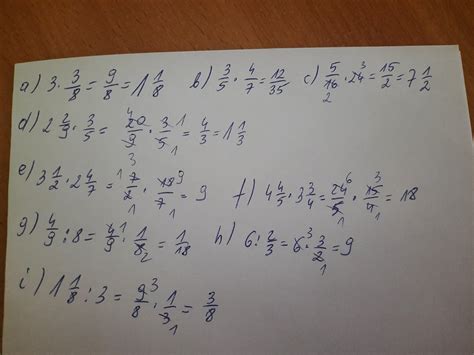 a) 3 · 3/8 = 9/8 = 1 1/8 b) 3/5 · 4/7 = 12/35 c) 5/16 2 · 24 3 = 15/2 = 7 1/2
d) 2 2/9 · 3/5 = 4 20/9 3 · 3 1/5 1 = 4/3 = 1 1/3
e) 3 1/2 · 2 4/7 = 1 7/2 1 · 18 9/7 1 = 9 f) 4 4/5 · 3 3/4 = 24 6/5 1 · 15 3/4 1 = 18
g) 4/9 : 8 = 4 1/9 · 1/8 2 = 1/18 h) 6 : 2/3 = 6 3 · 3/2 1 = 9
i) 1 1/8 : 3 = 9 3/8 · 1/3 1 = 3/8